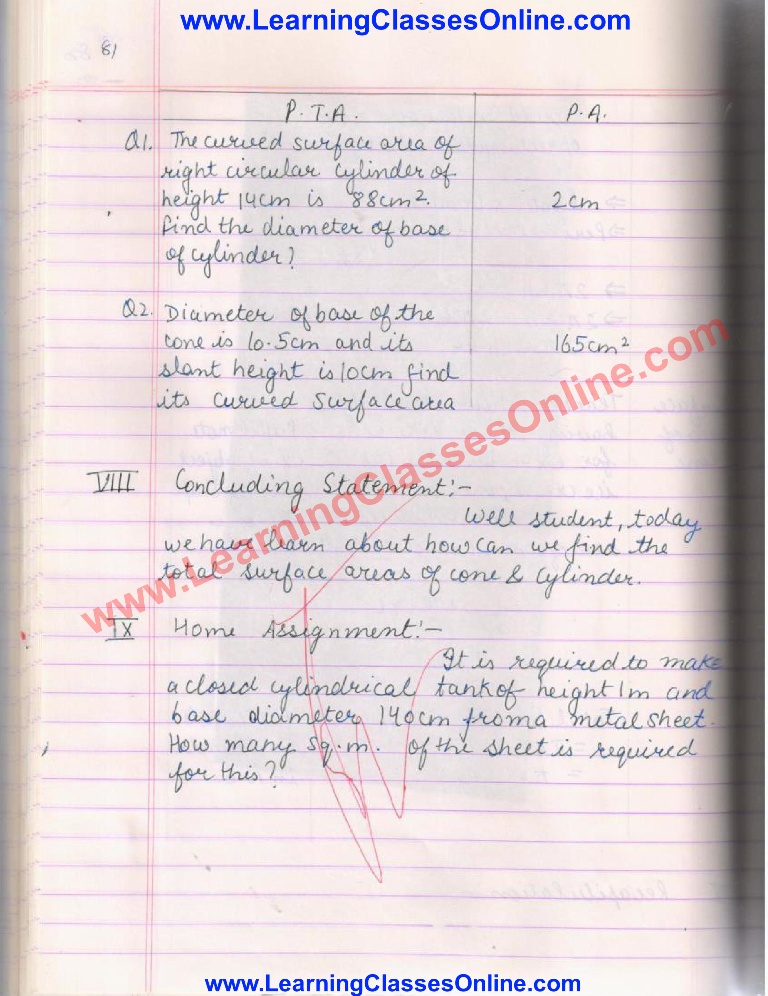 www.LearningClassesOnline.com
81
P.T.A. P.A.
Q1. The curved surface area of
right circular cylinder of
height 14cm is 88cm². 2cm
find the diameter of base
of cylinder?
Q2. Diameter of base of the
cone is 10.5cm and its 165cm²
slant height is 10cm find
its curved surface area
www.LearningClassesOnline.com
VIII Concluding Statement:-
Well student, today
we have learn about how can we find the
total surface areas of cone & cylinder.
IX Home Assignment:-
It is required to make
a closed cylindrical tank of height 1m and
base diameter 140cm from a metal sheet.
How many Sq.m. of the sheet is required
for this?
www.LearningClassesOnline.com